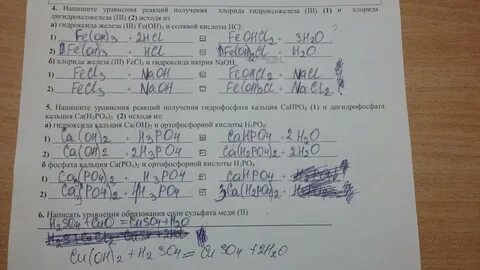 4. Напишите уравнения реакций получения хлорида гидроксожелеза (III) (1) и хлорида
дигидроксожелеза (III) (2) исходя из
а) гидроксида железа (III) Fe(OH)₃ и соляной кислоты HCl:
1) Fe(OH)3 + 2HCl = FeOHCl2 + 3H2O
2) Fe(OH)3 + HCl = Fe(OH)2Cl + H2O
б) хлорида железа (III) FeCl₃ и гидроксида натрия NaOH:
1) FeCl3 + NaOH = FeOHCl2 + NaCl
2) FeCl3 + NaOH = Fe(OH)2Cl + NaCl2
5. Напишите уравнения реакций получения гидрофосфата кальция CaHPO₄ (1) и дигидрофосфата
кальция Ca(H₂PO₄)₂ (2) исходя из:
а) гидроксида кальция Ca(OH)₂ и ортофосфорной кислоты H₃PO₄:
1) Ca(OH)2 + H3PO4 = CaHPO4 + 2H2O
2) Ca(OH)2 + 2H3PO4 = Ca(H2PO4)2 + 2H2O
б фосфата кальция Ca(PO₄)₂ и ортофосфорной кислоты H₃PO₄
1) Ca3(PO4)2 + H3PO4 = CaHPO4
2) Ca3(PO4)2 + 4H3PO4 = 3Ca(H2PO4)2
6. Написать уравнения образования соли сульфата меди (II)
H2SO4 + CuO = CuSO4 + H2O
Cu(OH)2 + H2SO4 = CuSO4 + 2H2O